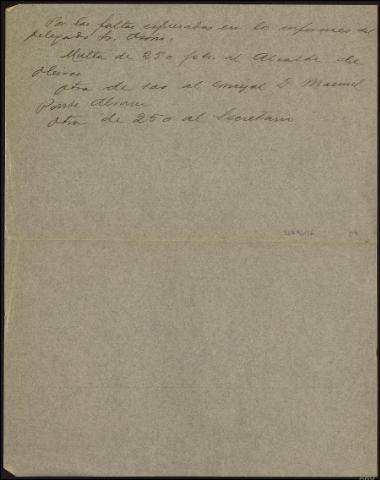 Por las faltas expresadas en los informes del
Delegado Sr.
Multa de 250 ptas. al Alcalde de
Oleiros
otra de 100 al concejal D. Manuel
Ponte
otra de 250 al Secretario